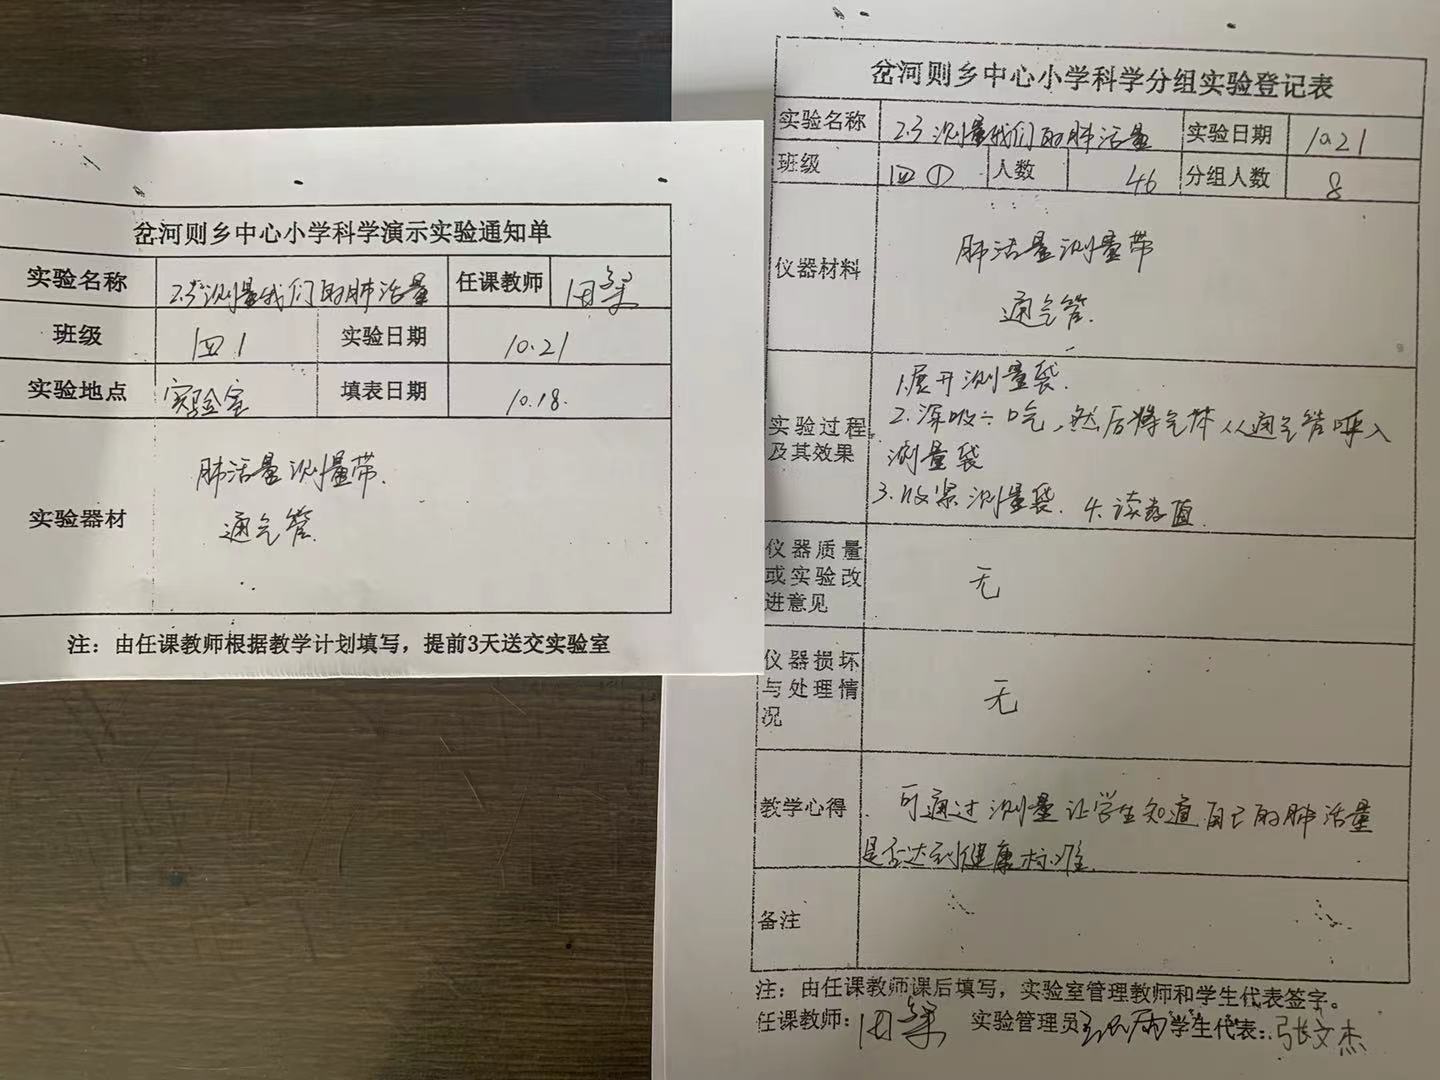 岔河则乡中心小学科学演示实验通知单
实验名称 2.3测量我们的肺活量 任课教师
班级 四1 实验日期 10.21
实验地点 实验室 填表日期 10.18.
实验器材 肺活量测量带.
通气管.
注：由任课教师根据教学计划填写，提前3天送交实验室
岔河则乡中心小学科学分组实验登记表
实验名称 2.3测量我们的肺活量 实验日期 10.21
班级 四① 人数 46 分组人数 8
仪器材料 肺活量测量带
通气管.
实验过程及其效果 1.展开测量袋.
2.深吸一口气,然后将气体从通气管呼入
测量袋
3.收紧测量袋. 4.读数值.
仪器质量或实验改进意见 无
仪器损坏与处理情况 无
教学心得 可通过测量让学生知道自己的肺活量
是否达到健康标准.
备注
注：由任课教师课后填写，实验室管理教师和学生代表签字。
任课教师： 实验管理员 学生代表：张文杰